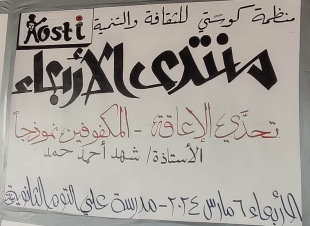 منظمة كوستي للثقافة والتنمية
Kosti
منتدى الأربعاء
تحدّي الإعاقة - المكفوفين نموذجاً
الأستاذة/ شهد أحمد حمد
الأربعاء ٦ مارس ٢٠٢٤ - مدرسة علي التوم الثانوية